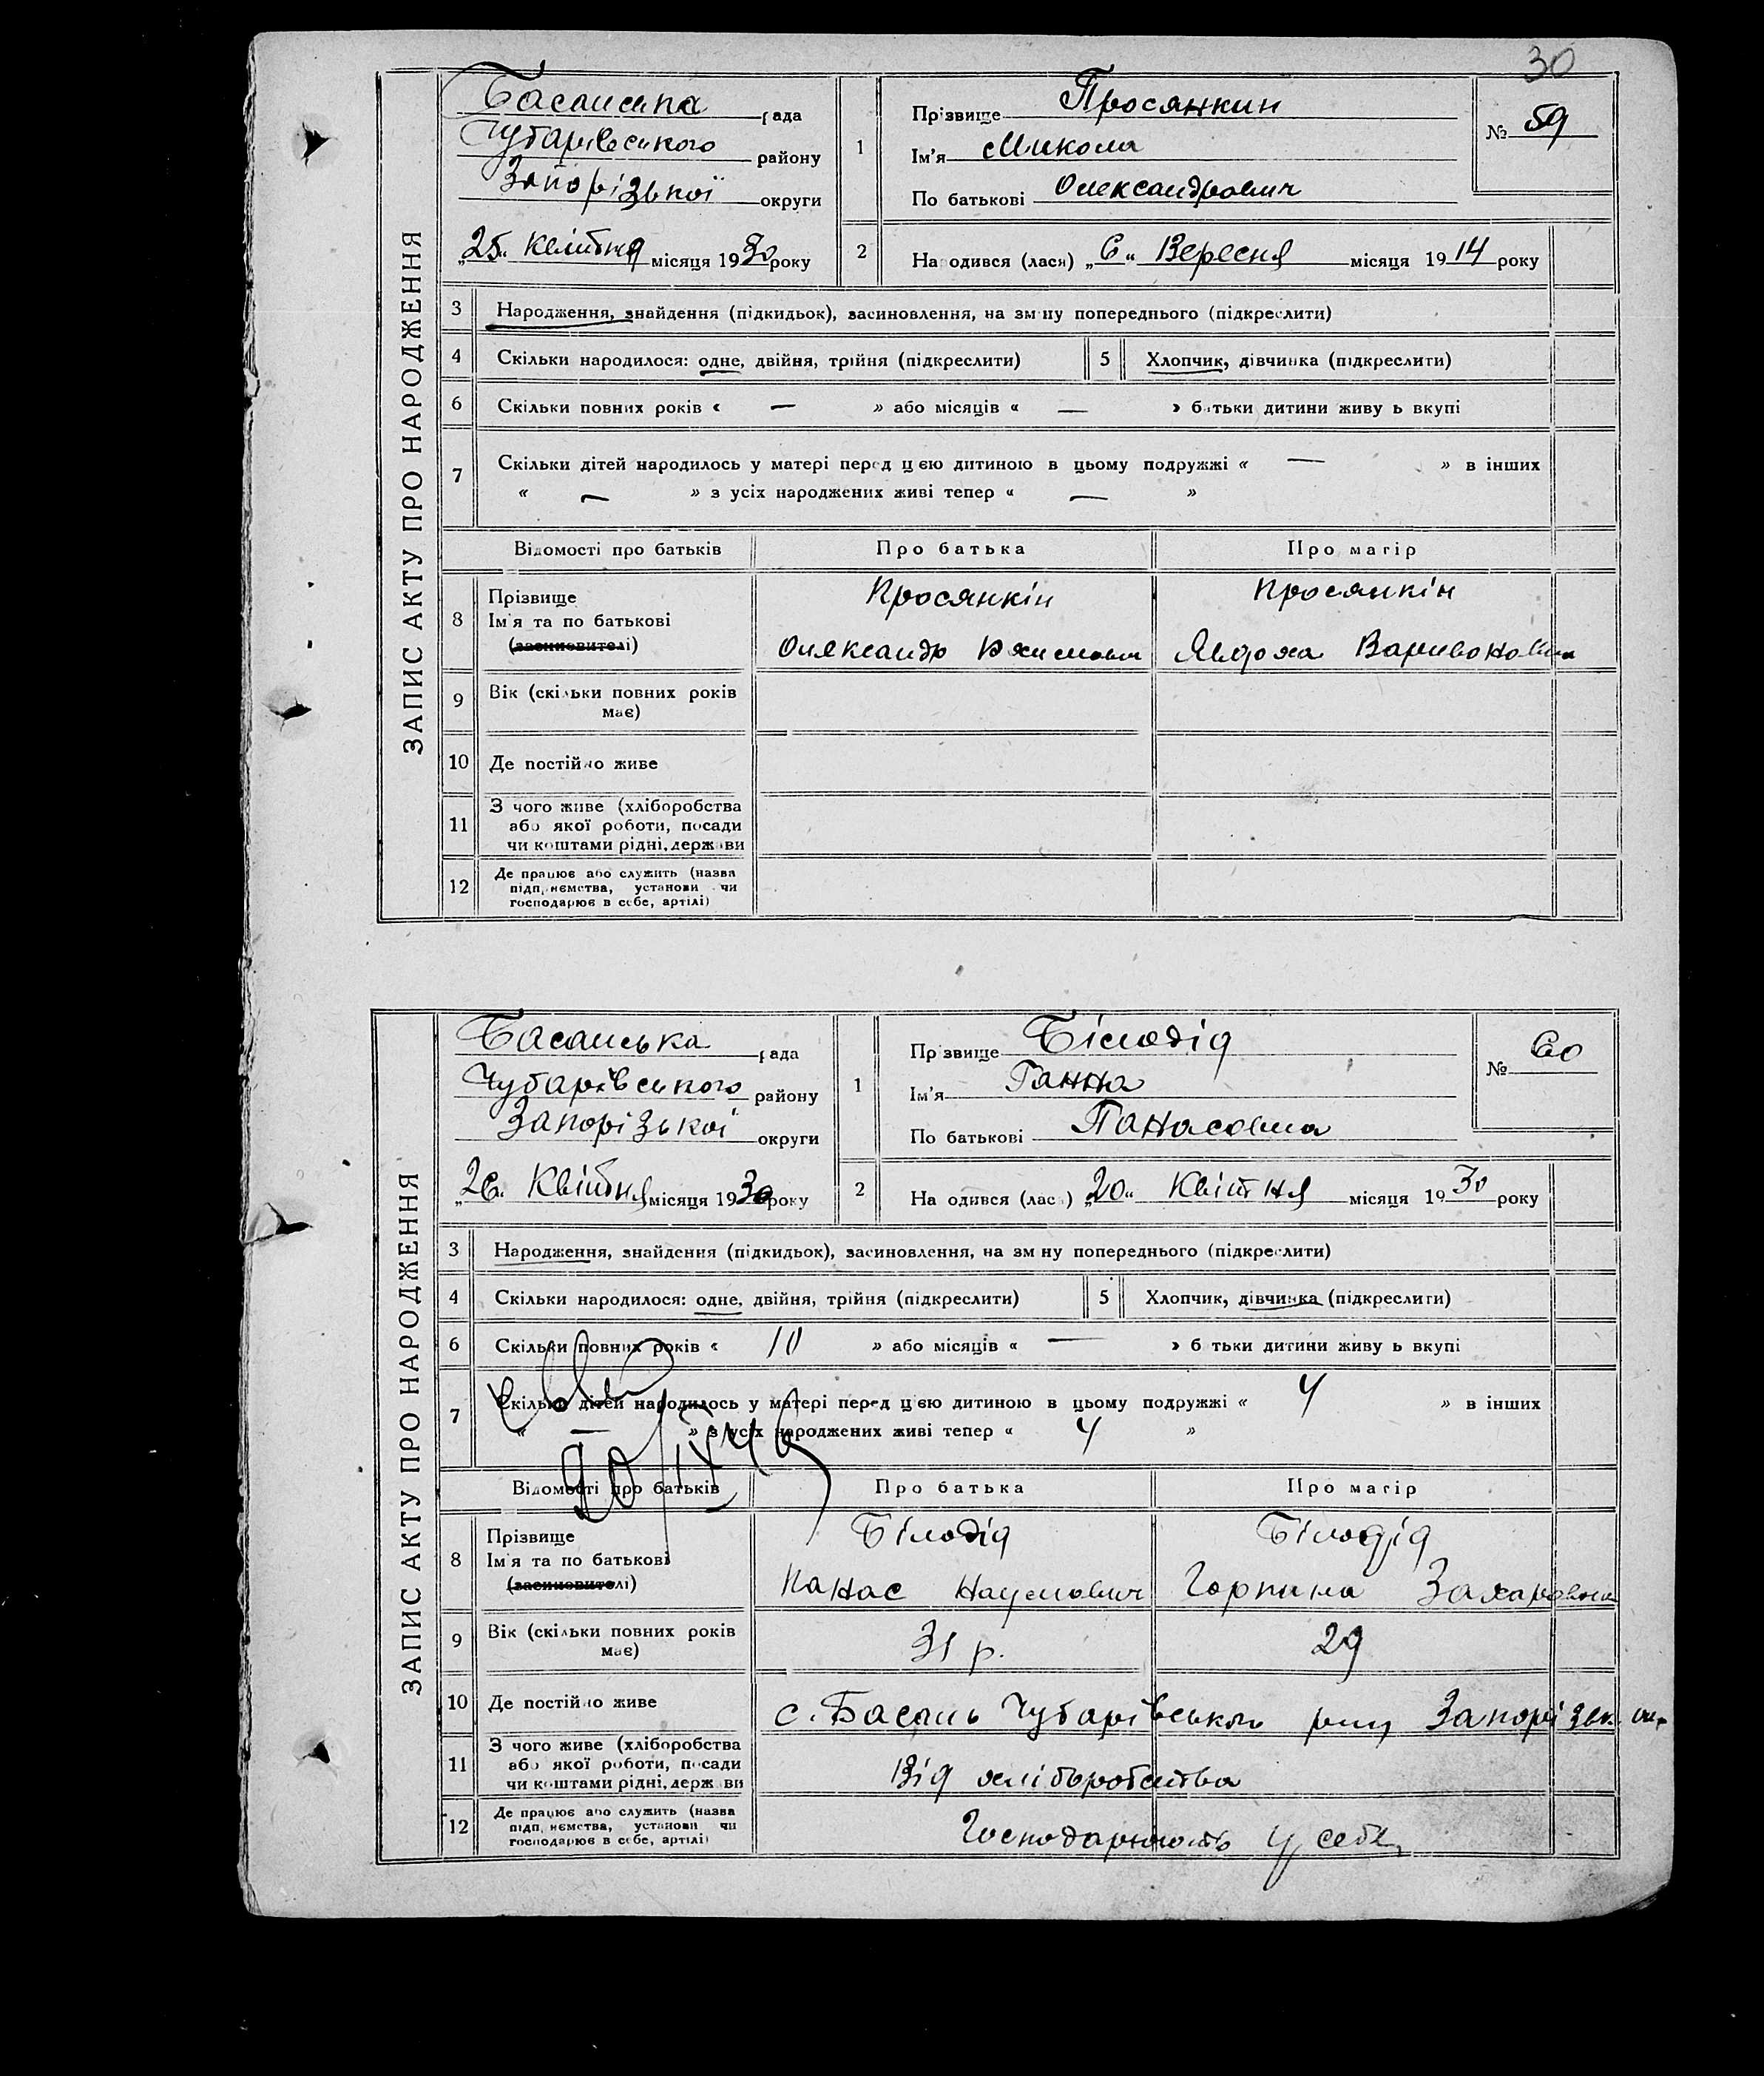 30
ЗАПИС АКТУ ПРО НАРОДЖЕННЯ
Басанська рада
Чубарівського району
Запорізької округи
„25“ Квітня місяця 1930 року
1
Прізвище Просянкин
Ім'я Микола
По батькові Олександрович
№ 59
2
Народився (лася) „6“ Вересня місяця 1914 року
3 Народження, знайдення (підкидьок), засиновлення, на зміну попереднього (підкреслити)
4 Скільки народилося: одне, двійня, трійня (підкреслити) 5 Хлопчик, дівчинка (підкреслити)
6 Скільки повних років « — » або місяців « — » батьки дитини живуть вкупі
7 Скільки дітей народилось у матері перед цією дитиною в цьому подружжі « — » в інших
« — » з усіх народжених живі тепер « — »
Відомості про батьків Про батька Про матір
8 Прізвище Просянкін Просянкін
Ім'я та по батькові
(засиновителі) Олександр Явдоха Варивоновна
9 Вік (скільки повних років
має)
10 Де постійно живе
11 З чого живе (хліборобства
або якої роботи, посади
чи коштами рідні, держави
12 Де працює або служить (назва
підприємства, установи чи
господарює в себе, артілі)
ЗАПИС АКТУ ПРО НАРОДЖЕННЯ
Басанська рада
Чубарівського району
Запорізької округи
„26“ Квітня місяця 1930 року
1
Прізвище Білодід
Ім'я Ганна
По батькові Панасовна
№ 60
2
Народився (лася) „20“ Квітня місяця 1930 року
3 Народження, знайдення (підкидьок), засиновлення, на зміну попереднього (підкреслити)
4 Скільки народилося: одне, двійня, трійня (підкреслити) 5 Хлопчик, дівчинка (підкреслити)
6 Скільки повних років « 10 » або місяців « — » батьки дитини живуть вкупі
7 Скільки дітей народилось у матері перед цією дитиною в цьому подружжі « 4 » в інших
« — » з усіх народжених живі тепер « 4 »
Відомості про батьків Про батька Про матір
8 Прізвище Білодід Білодід
Ім'я та по батькові
(засиновителі) Панас Наумович Горпина Захаровна
9 Вік (скільки повних років 31 р. 29
має)
10 Де постійно живе с. Басань Чубарівського р-ну Запорізьк. окр
11 З чого живе (хліборобства
або якої роботи, посади Від хліборобства
чи коштами рідні, держави
12 Де працює або служить (назва
підприємства, установи чи Господарюють у себе
господарює в себе, артілі)